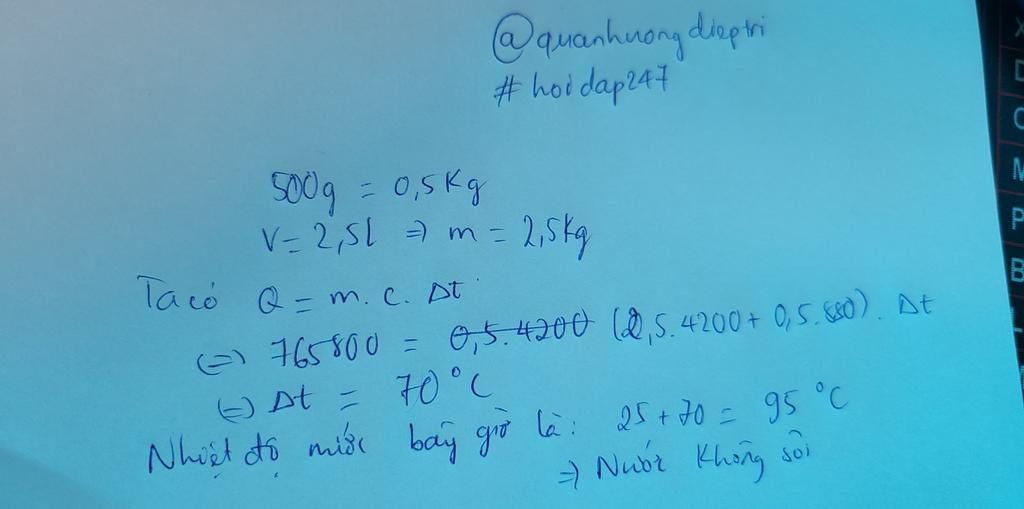 @quanhuongdieptri
#hoidap247
500g = 0,5Kg
V = 2,5l => m = 2,5kg
Ta có Q = m. c. Δt
(=) 765800 = 0,5.4200 (2,5.4200 + 0,5.880). Δt
(=) Δt = 70°C
Nhiệt độ nước bây giờ là: 25 + 70 = 95 °C
=> Nước không sôi
X
D
C
M
P
B